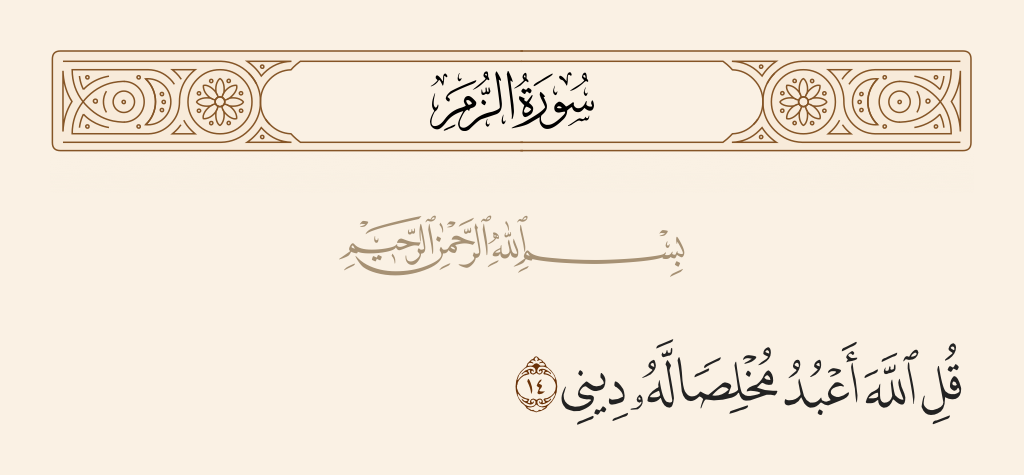 سُورَةُ الزُّمَرِ
بِسْمِ ٱللَّهِ ٱلرَّحْمَٰنِ ٱلرَّحِيمِ
قُلِ ٱللَّهَ أَعْبُدُ مُخْلِصًا لَّهُۥ دِينِى ١٤